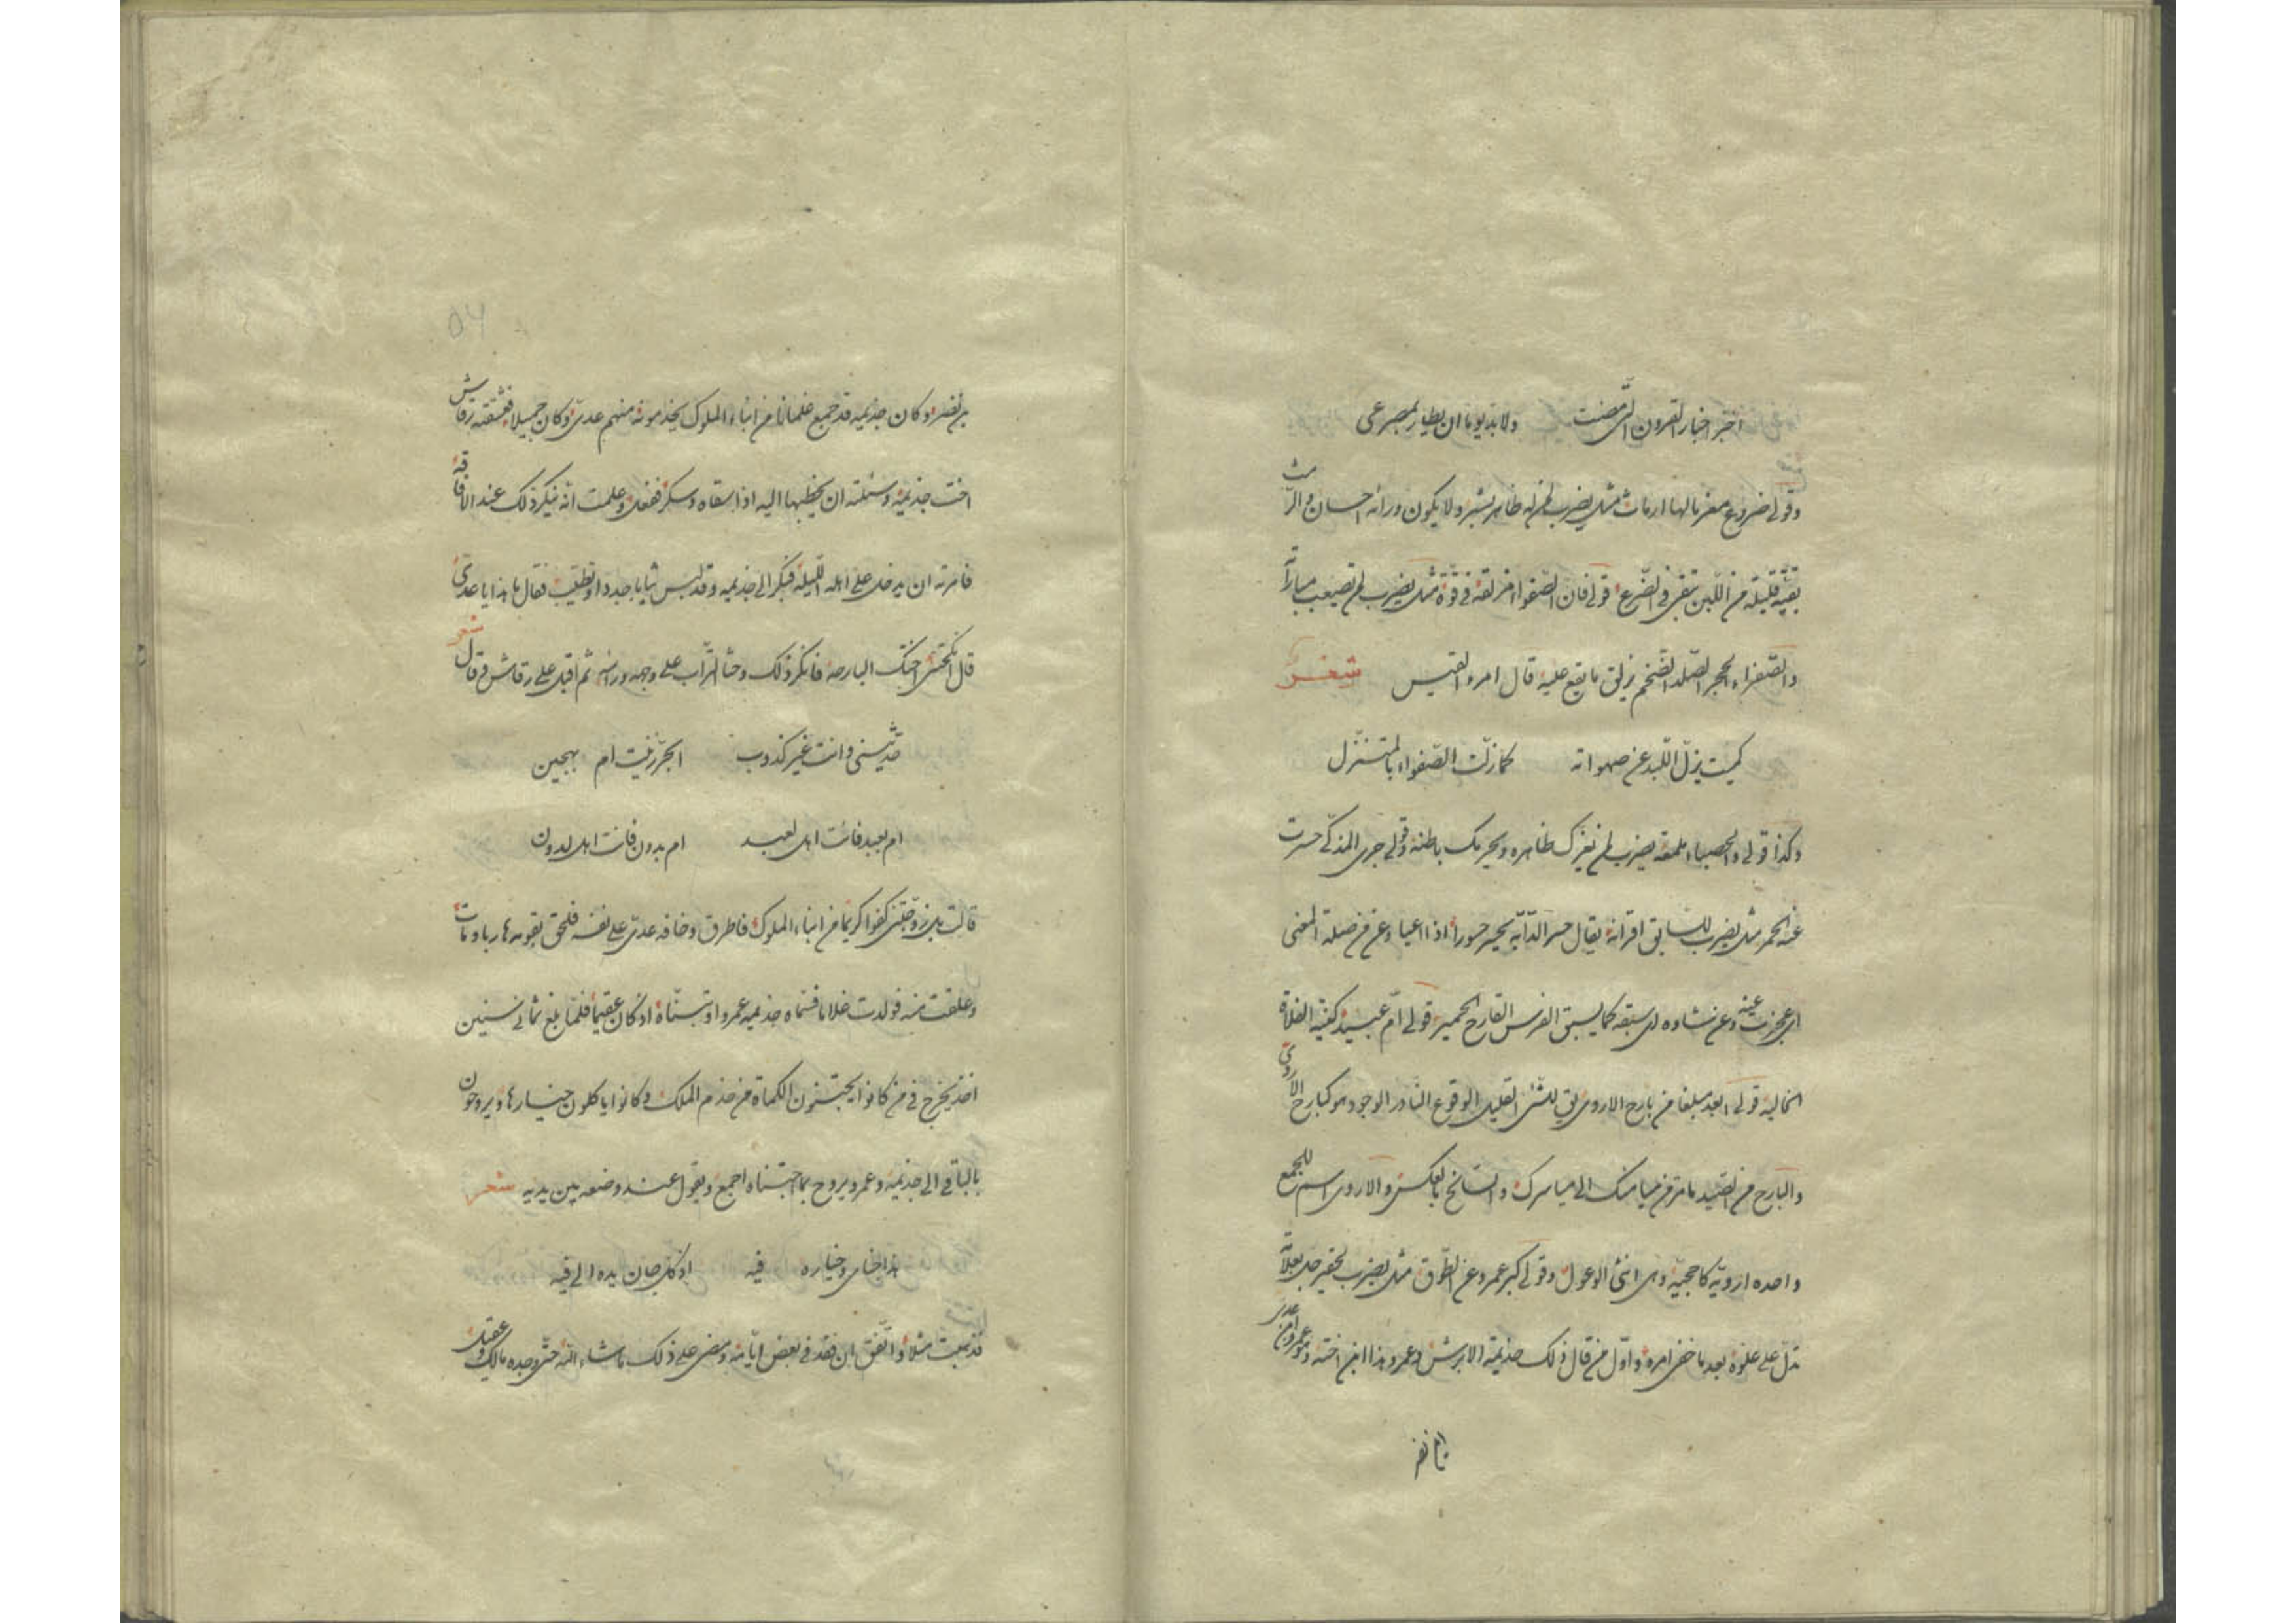 اخبّر اخبار القرون الّتی مضت ولابدّ یوما ان یطار بمصرعی
وقولی ضروع معز مالها ارماث مثل یضرب لمن له ظاهر بشر ولا یکون ورائه احسان والرّمث
بقیّة قلیلة من اللّبن تبقی فی الضّرع قولی فان الصّفواء مزلقة فی قوّة مثل یضرب لمن تصیعب مباراته
والصّفراء الحجر الصّلد الضّخم یزلق ما یقع علیه قال امرء القیس شعر
کمیت یزلّ اللّبد عن صهواته کما زلّت الصّفواء بالمتنزّل
وکذا قولی والحصباء ملمعة یضرب لمن یغرک ظاهره ویحربک باطنه وقولی جری المذکّی حسرت
عنه الحمر مثل یضرب للسابق اقرانه یقال حسر الدّابّة یحسر حسورا اذا اعیا وعن من صلة المعنی
ای عجزت عنه وعن شاوه ای سبقه کما یسبق الفرس القارح الحمیر قولی امّ عبید کنیة الفلاة
الخالیة قولی ابعد مبلغا من بارح الاروی یق للشئ القلیل الوقوع النادر الوجود هو کبارح الاروی
والبارح من الصّید ما مرّ من میامنک الی میاسرک والسّانح بالعکس والاروی اسم للجمع
واحده ارویّة کاحجیّة وهی انثی الوعول وقولی کبر عمرو عن الطّوق مثل یضرب لحقیر جلّ بعلاته
تدلّ علی علوّه بعد ما خفی امره واوّل من قال ذلک جذیمة الابرش وعمرو هذا ابن اخته وهو عمرو ابن عدی
ابن نصر
بن نصر وکان جذیمه قد جمع غلمانا من ابناء الملوک یخدمونه منهم عدیّ وکان جمیلا فعشقته رقاش
اخت جذیمة وسئلته ان یخطبها الیه اذا سقاه وسکر ففعل وعلمت انّه ینکر ذلک عند الافاقة
فامرته ان یدخل علی اهله اللّیلة فبکر الی جذیمه وقد لبس ثیابا جددا وتطیّب فقال ما هذا یا عدیّ
قال انکحتنی اختک البارحة فانکر ذلک وحثا التّراب علی وجهه وراسه ثم اقبل علی رقاش وقال شعر
حدّثینی وانت غیر کذوب ابحرّ زنیت ام بهجین
ام بعبد فانت اهل لعبد ام بدون فانت اهل لدون
قالت بل زوّجتنی کفوا کریما من ابناء الملوک فاطرق وخافه عدیّ علی نفسه فلحق بقومه هاربا ومات
وعلقت منه فولدت غلاما فسمّاه جذیمه عمروا وتبنّاه اذ کان عقیما فلمّا بلغ ثمانی سنین
اخذ یخرج فی من کانوا یجتنون الکماة من خدم الملک وکانوا یاکلون خیارها ویروحون
بالباقی الی جذیمة وعمرو یروح بما اجتناه اجمع ویقول عند وضعه بین یدیه شعر
هذا جنای وخیاره فیه اذ کل جان یده الی فیه
فذهبت مثلا واتّفق ان فقد فی بعض ایّامه ومضی علی ذلک ما شاء اللّه حتّی وجده مالک وعقیل